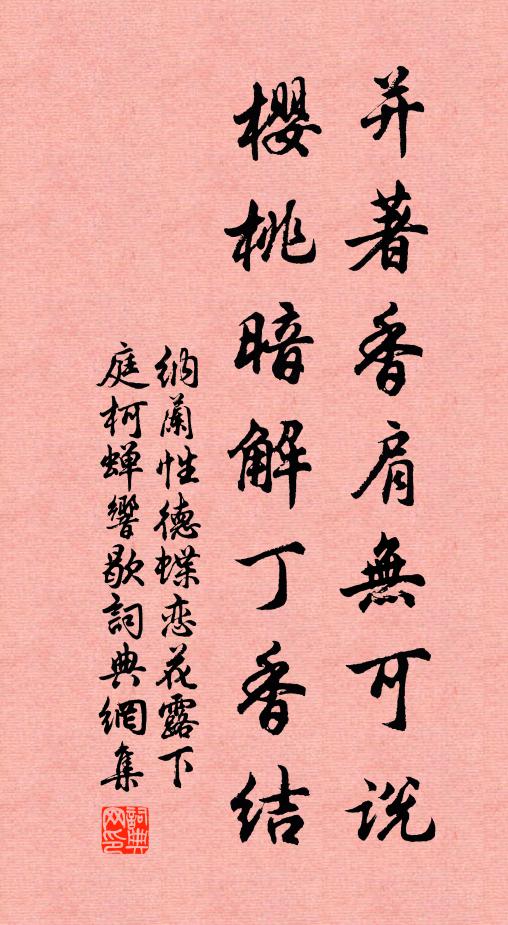 并著香肩無可说
櫻桃暗解丁香结
纳蘭性德蝶恋花露下
庭柯蝉響歇詞典網集
詞典网印